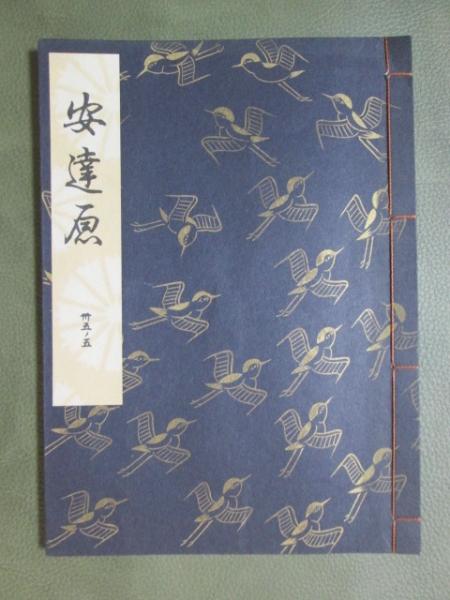 安達原
卅五ノ五